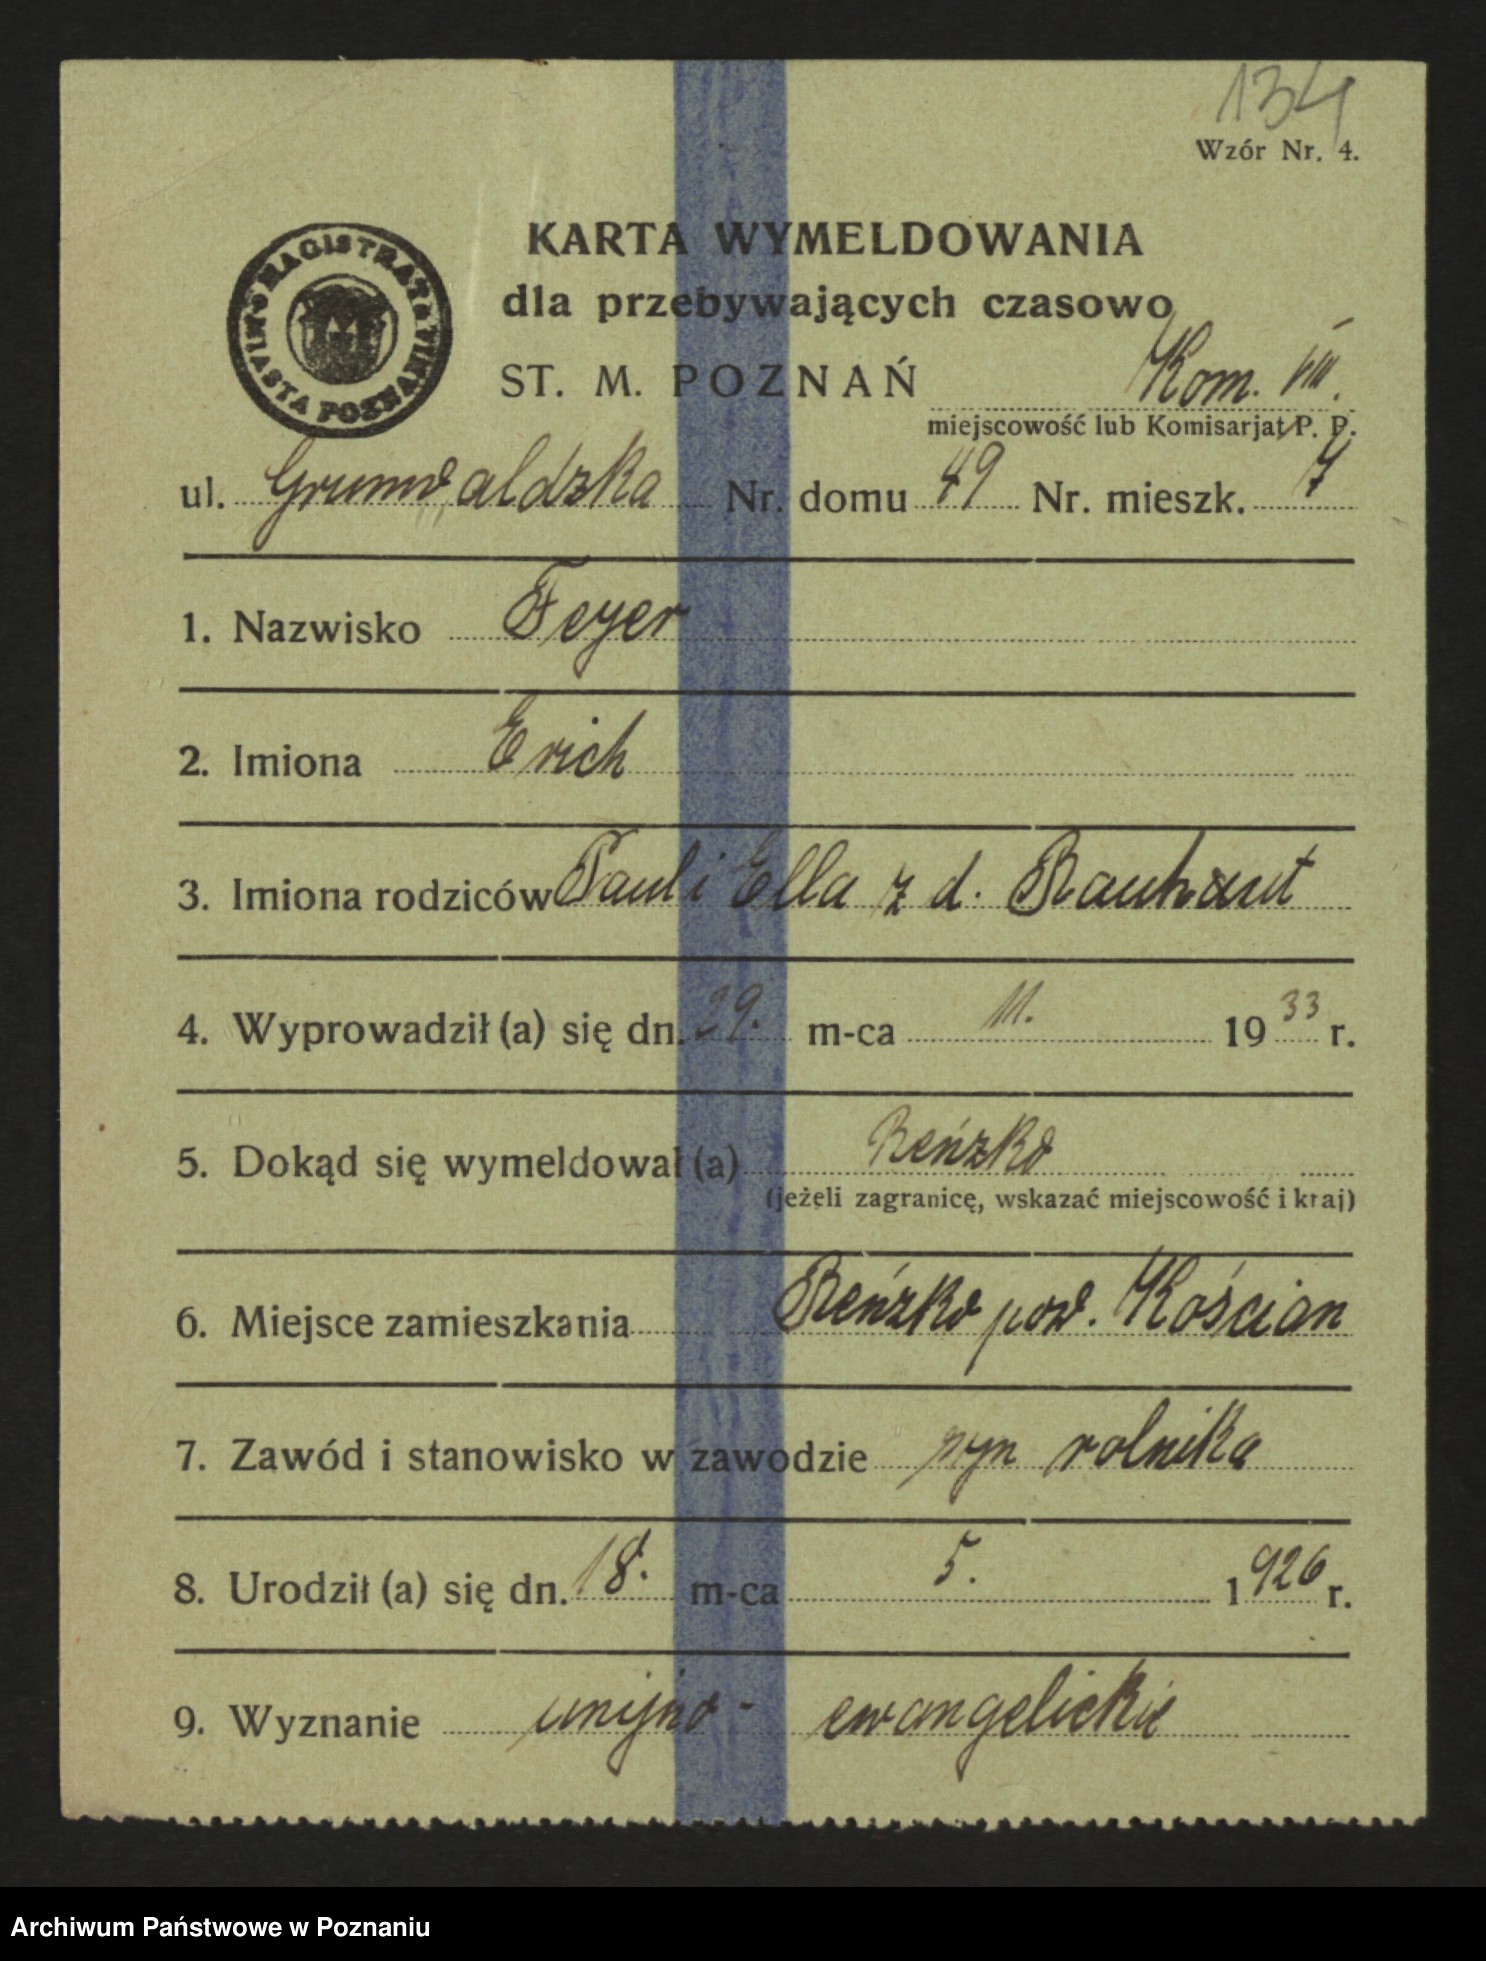 134
Wzór Nr. 4.
MAGISTRAT STOŁ. MIASTA POZNANIA
KARTA WYMELDOWANIA
dla przebywających czasowo
ST. M. POZNAŃ Kom. VIII.
miejscowość lub Komisarjat P. P.
ul. Grunwaldzka Nr. domu 49 Nr. mieszk. 7
1. Nazwisko Feyer
2. Imiona Erich
3. Imiona rodziców Paul i Ella z d. Rauhaut
4. Wyprowadził (a) się dn. 29. m-ca 11. 19 33 r.
5. Dokąd się wymeldował (a) Reńzko
(jeżeli zagranicę, wskazać miejscowość i kraj)
6. Miejsce zamieszkania Reńzko pow. Kościan
7. Zawód i stanowisko w zawodzie syn rolnika
8. Urodził (a) się dn. 18. m-ca 5. 1926 r.
9. Wyznanie unijno - ewangelickie
Archiwum Państwowe w Poznaniu